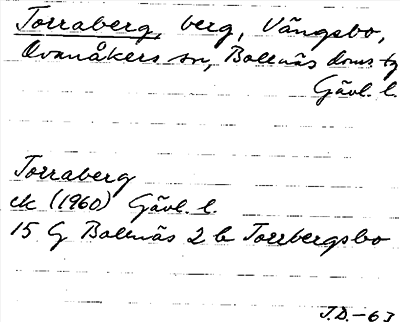 Torraberg, berg, Vängsbo,
Ovanåkers sn, Bollnäs doms.tg
Gävl. l.
Torraberg
ek (1960) Gävl. l.
15 G Bollnäs 2 b Torrbergsbo
J.D.-63